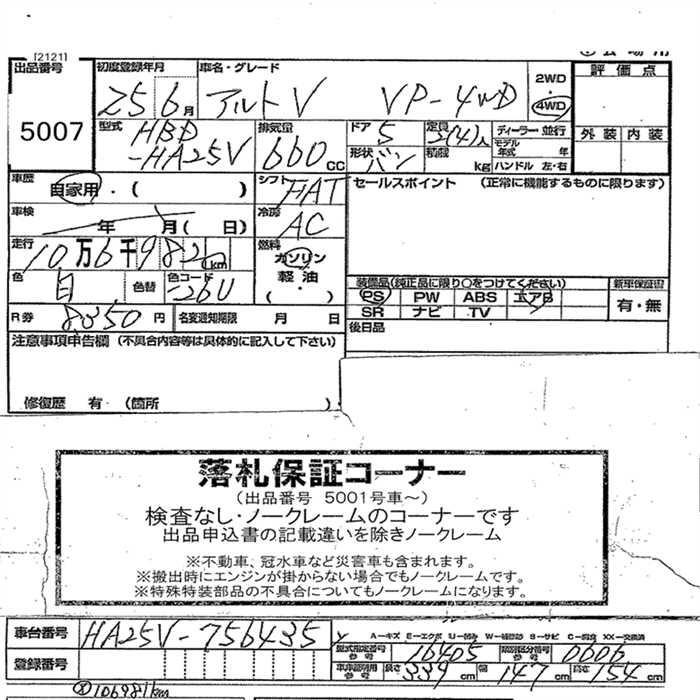 [2121]
出品番号
5007
初度登録年月
25 6月
車名・グレード
アルトV VP-4WD
2WD
4WD
評価点
外装 内装
型式
HBD
-HA25V
排気量
660 CC
ドア 5
形状 バン
定員 2(4)人
積載 kg
ディーラー 並行
モデル年式 年
ハンドル 左・右
車歴
自家用・( )
シフト FAT
セールスポイント (正常に機能するものに限ります)
車検
年 月( 日)
冷房 AC
走行
10万6千982km
燃料
ガソリン
軽油
( ・ )
色 白
色替
色コード -26U
装備品(純正品に限り○をつけてください)
PS PW ABS エアB
SR ナビ TV
新車保証書
有・無
R券 8350円
名変通知期限 月 日
後日品
注意事項申告欄(不具合内容等は具体的に記入して下さい)
修復歴 有 (箇所 )
落札保証コーナー
(出品番号 5001号車~)
検査なし・ノークレームのコーナーです
出品申込書の記載違いを除きノークレーム
※不動車、冠水車など災害車も含まれます。
※搬出時にエンジンが掛からない場合でもノークレームです。
※特殊特装部品の不具合についてもノークレームになります。
車台番号 HA25V-756435
A-キズ E-エクボ U-凹み W-補修跡 S-サビ C-腐食 XX-交換済
登録番号
型式指定番号 参考 16405
類別区分番号 参考 0606
車庫証明用 参考 長さ 339cm 幅 147cm 高さ 154cm
106981km